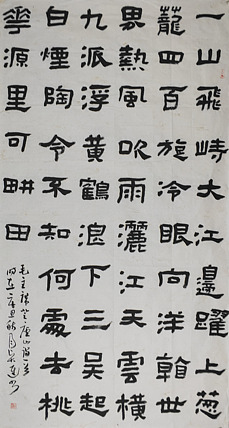 一山飛峙大江邊躍上葱
蘢四百旋冷眼向洋看世
界熱風吹雨灑江天雲橫
九派浮黃鶴浪下三吳起
白煙陶令不知何處去桃
華源里可畊田
毛主席登廬山